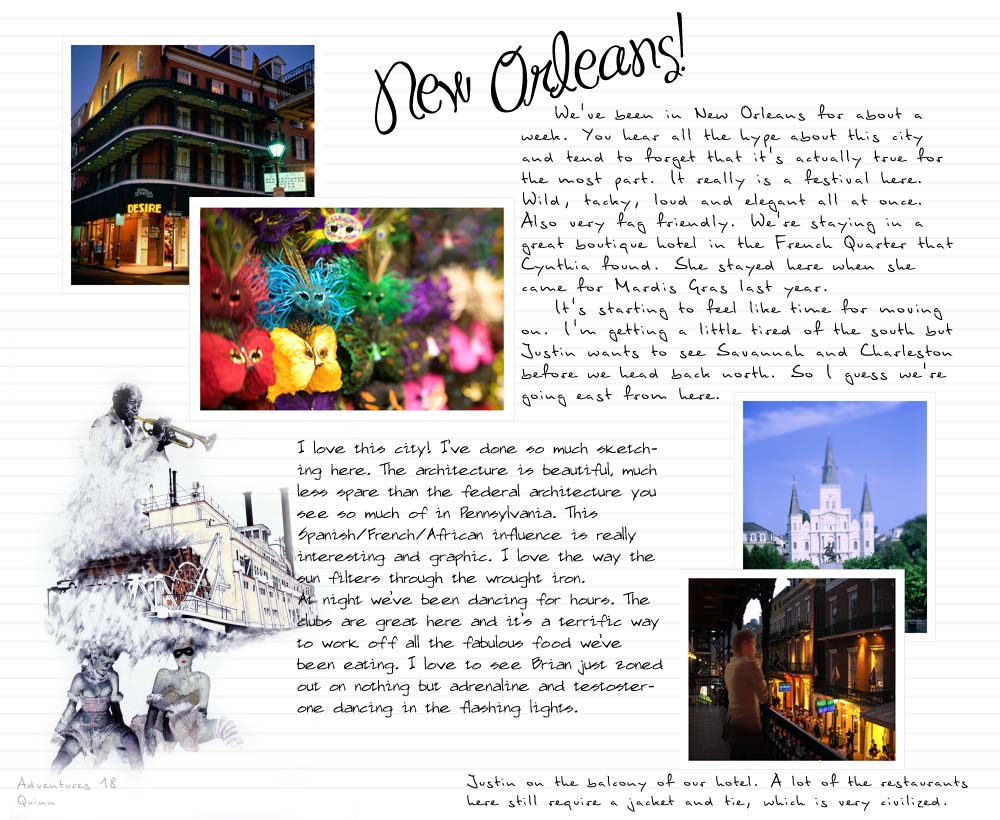 New Orleans!
We've been in New Orleans for about a
week. You hear all the hype about this city
and tend to forget that it's actually true for
the most part. It really is a festival here.
Wild, tacky, loud and elegant all at once.
Also very fag friendly. We're staying in a
great boutique hotel in the French Quarter that
Cynthia found. She stayed here when she
came for Mardis Gras last year.
It's starting to feel like time for moving
on. I'm getting a little tired of the south but
Justin wants to see Savannah and Charleston
before we head back north. So I guess we're
going east from here.
DESIRE
I love this city! I've done so much sketch-
ing here. The architecture is beautiful, much
less spare than the federal architecture you
see so much of in Pennsylvania. This
Spanish/French/African influence is really
interesting and graphic. I love the way the
sun filters through the wrought iron.
At night we've been dancing for hours. The
clubs are great here and it's a terrific way
to work off all the fabulous food we've
been eating. I love to see Brian just zoned
out on nothing but adrenaline and testoster-
one dancing in the flashing lights.
Justin on the balcony of our hotel. A lot of the restaurants
here still require a jacket and tie, which is very civilized.
Adventures 18
Quinn